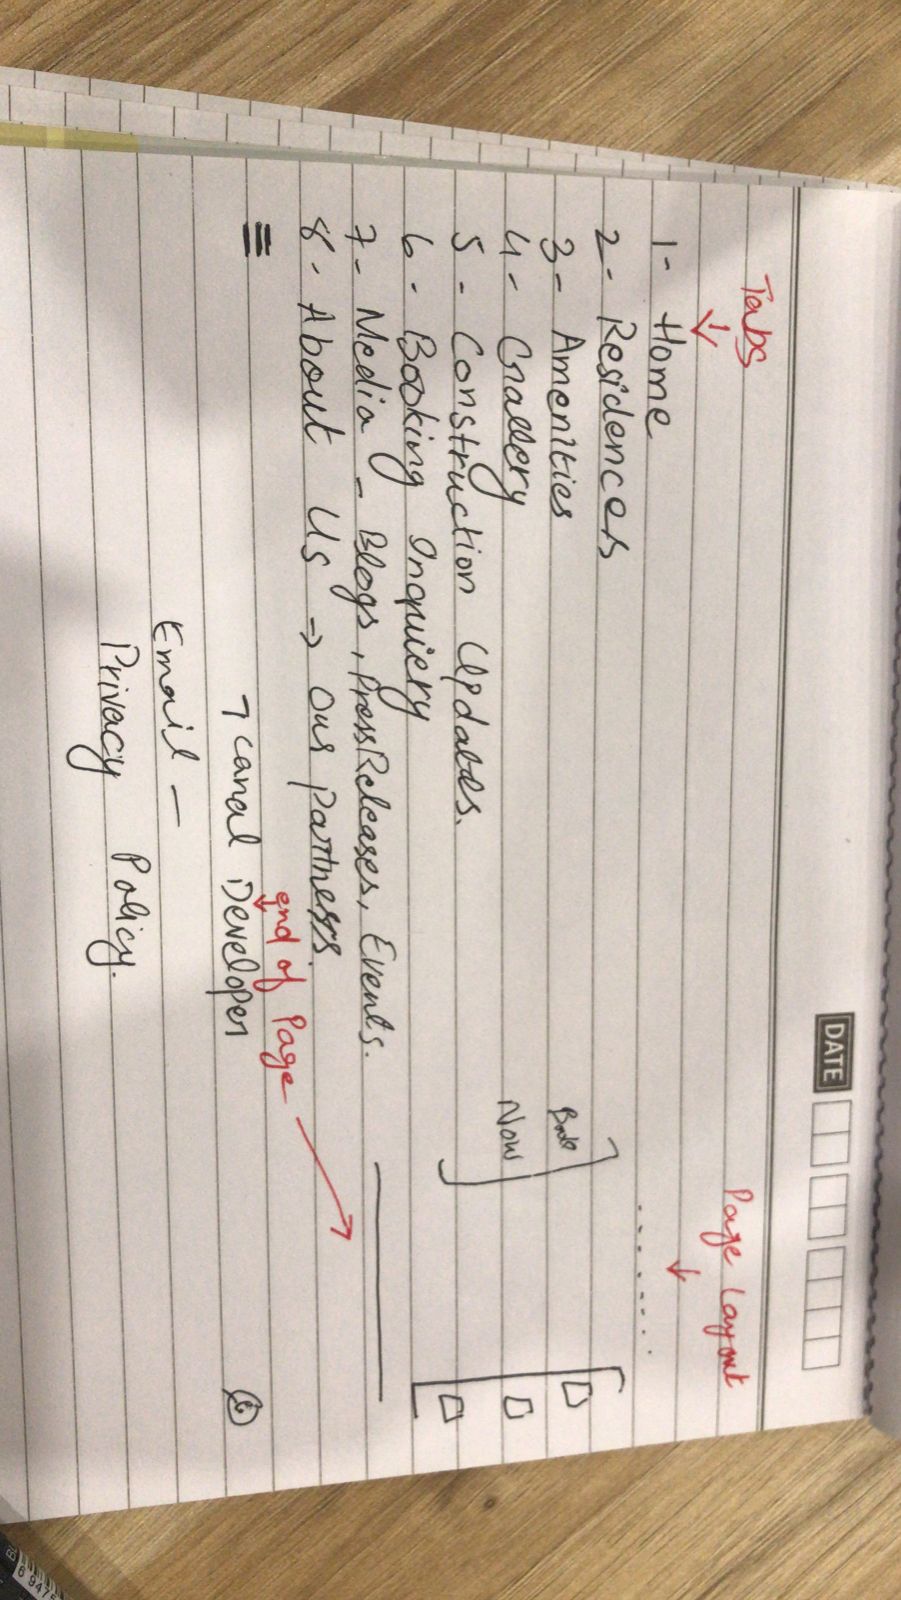 DATE
Tabs
Page Layout
1- Home
2- Residences
3- Amenities
Book
4- Gallery
Now
5 - Construction Updates.
6 - Booking Inquiery
7- Media - Blogs, Press Releases, Events.
8- About Us → Our partners.
end of Page
7 canal Developer
Email —
Privacy Policy.